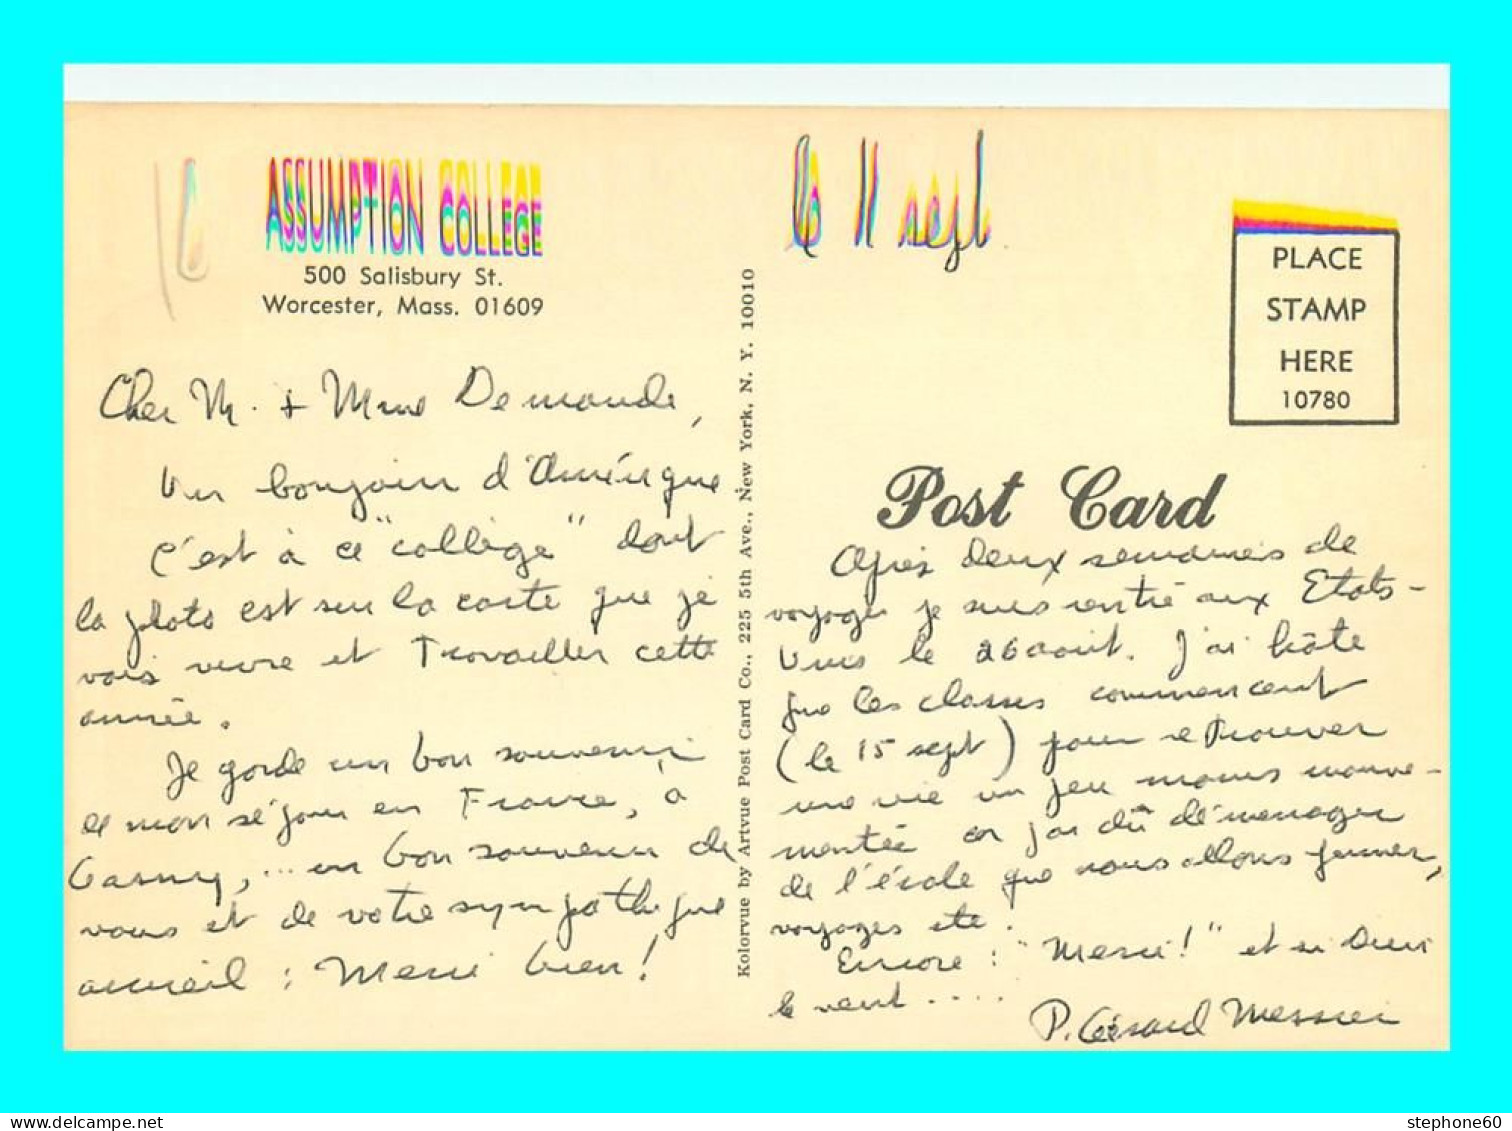 ASSUMPTION COLLEGE
500 Salisbury St.
Worcester, Mass. 01609
Cher M. + Mme Demande,
Un bonjour d'Amérique
C'est à ce "collège" dont
la photo est sur la carte que je
vais vivre et travailler cette
année.
Je garde un bon souvenir
de mon séjour en France, à
... un bon souvenir de
vous et de votre sympathique
accueil : Merci bien!
Kolorvue by Artvue Post Card Co., 225 5th Ave., New York, N. Y. 10010
le 11 sept
PLACE
STAMP
HERE
10780
Post Card
Après deux semaines de
voyage je suis rentré aux Etats-
Unis le 26 août. J'ai hâte
que les classes commencent
(le 15 sept) pour retrouver
une vie un peu moins mouve-
mentée car j'ai dû déménager
de l'école que nous allons fermer,
voyages etc.
Encore : "Merci!" et si Dieu
le veut ....
P. Gérard Messier
stephone60